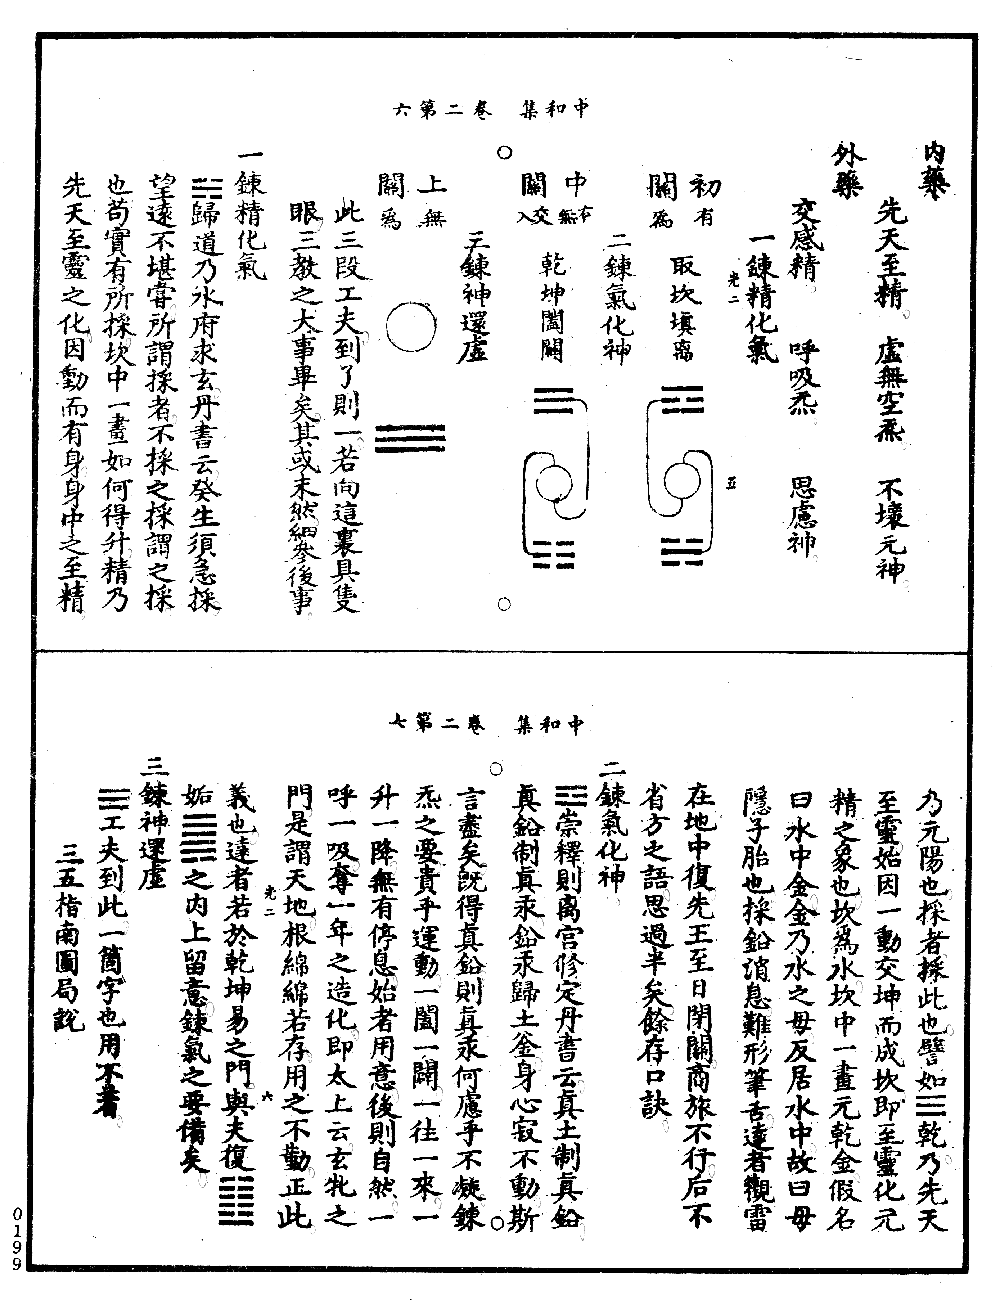 中和集　卷二第六
内藥
先天至精　虛無空炁　不壞元神
外藥
交感精　呼吸炁　思慮神
一鍊精化氣
光二
五
初關 有爲
取坎填离
☲
☵
二鍊氣化神
中關 有無交入
乾坤闔闢
☰
☷
三鍊神還虛
上關 無爲
☰
此三段工夫到了則一若向這裏具隻
眼三教之大事畢矣其或未然細參後事
一鍊精化氣
☵歸道乃水府求玄丹書云癸生須急採
望遠不堪嘗所謂採者不採之採謂之採
也苟實有所採坎中一畫如何得升精乃
先天至靈之化因動而有身身中之至精
中和集　卷二第七
乃元陽也採者採此也譬如☰乾乃先天
至靈始因一動交坤而成坎即至靈化元
精之象也坎爲水坎中一畫元乾金假名
曰水中金金乃水之母反居水中故曰母
隱子胎也採鉛消息難形筆舌達者觀雷
在地中復先王至日閉關商旅不行后不
省方之語思過半矣餘存口訣
二鍊氣化神
☲崇釋則离宮修定丹書云真土制真鉛
真鉛制真汞鉛汞歸土釜身心寂不動斯
言盡矣既得真鉛則真汞何慮乎不凝鍊
炁之要貴乎運動一闔一闢一往一來一
升一降無有停息始者用意後則自然一
呼一吸奪一年之造化即太上云玄牝之
門是謂天地根綿綿若存用之不勤正此
光二
六
義也達者若於乾坤易之門與夫復䷗
姤䷫之内上留意鍊氣之要備矣
三鍊神還虛
☰工夫到此一箇字也用不著
三五指南圖局說
0199